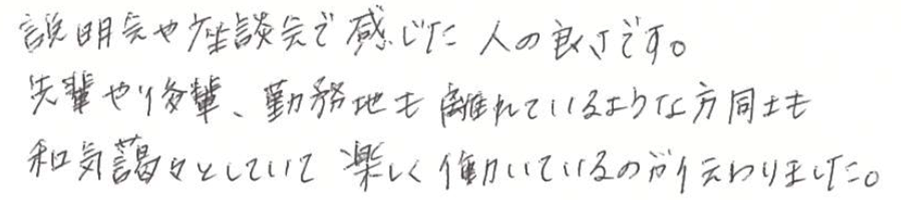 説明会や座談会で感じた人の良さです。
先輩や後輩、勤務地も離れているような方同士も
和気藹々としていて楽しく働いているのが伝わりました。